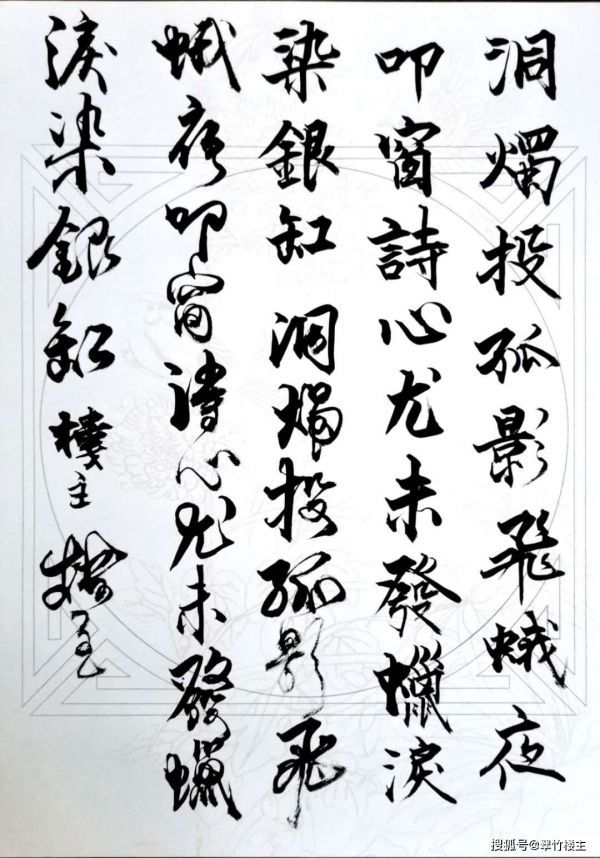 洞燭投孤影飛蛾夜
叩窗詩心尤未發蠟淚
染銀缸 洞燭投孤影飛
蛾夜叩窗詩心尤未發蠟
淚染銀缸 樓主
搜狐号@翠竹楼主